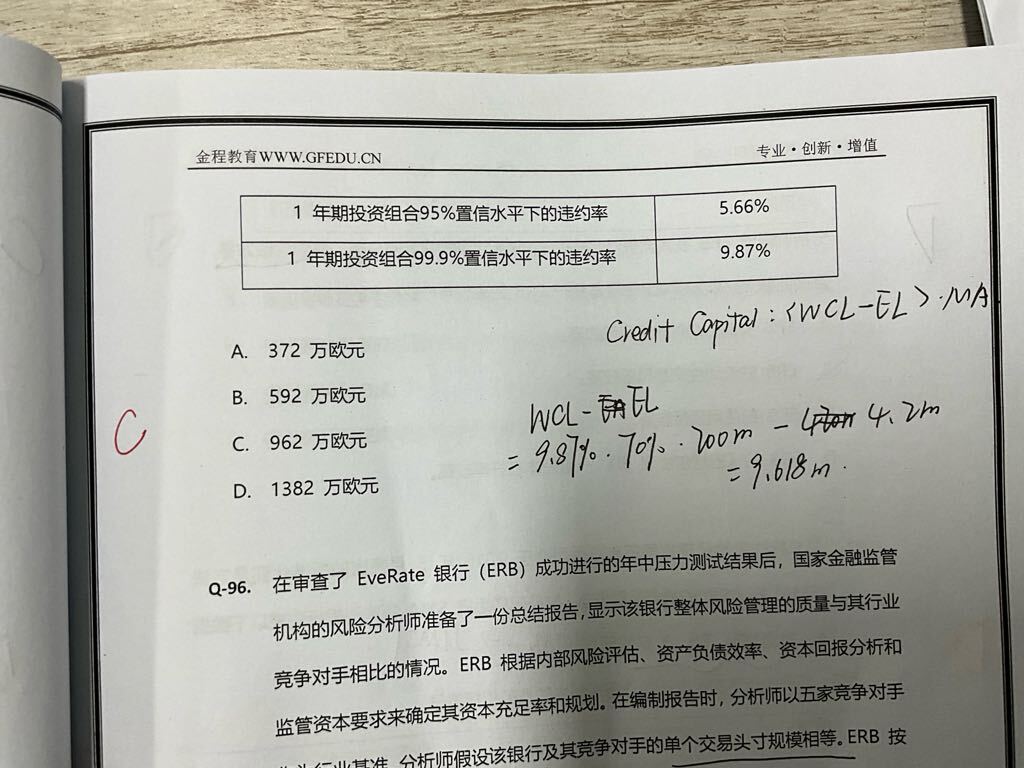 金程教育WWW.GFEDU.CN 专业·创新·增值
1 年期投资组合95%置信水平下的违约率 5.66%
1 年期投资组合99.9%置信水平下的违约率 9.87%
Credit Capital: <WCL-EL>·MA
A. 372 万欧元
B. 592 万欧元
C. 962 万欧元
D. 1382 万欧元
C
WCL - EL
= 9.87% · 70% · 200m - 4.2m
= 9.618m.
Q-96. 在审查了 EveRate 银行（ERB）成功进行的年中压力测试结果后，国家金融监管
机构的风险分析师准备了一份总结报告,显示该银行整体风险管理的质量与其行业
竞争对手相比的情况。ERB 根据内部风险评估、资产负债效率、资本回报分析和
监管资本要求来确定其资本充足率和规划。在编制报告时，分析师以五家竞争对手
分析师假设该银行及其竞争对手的单个交易头寸规模相等。ERB 按